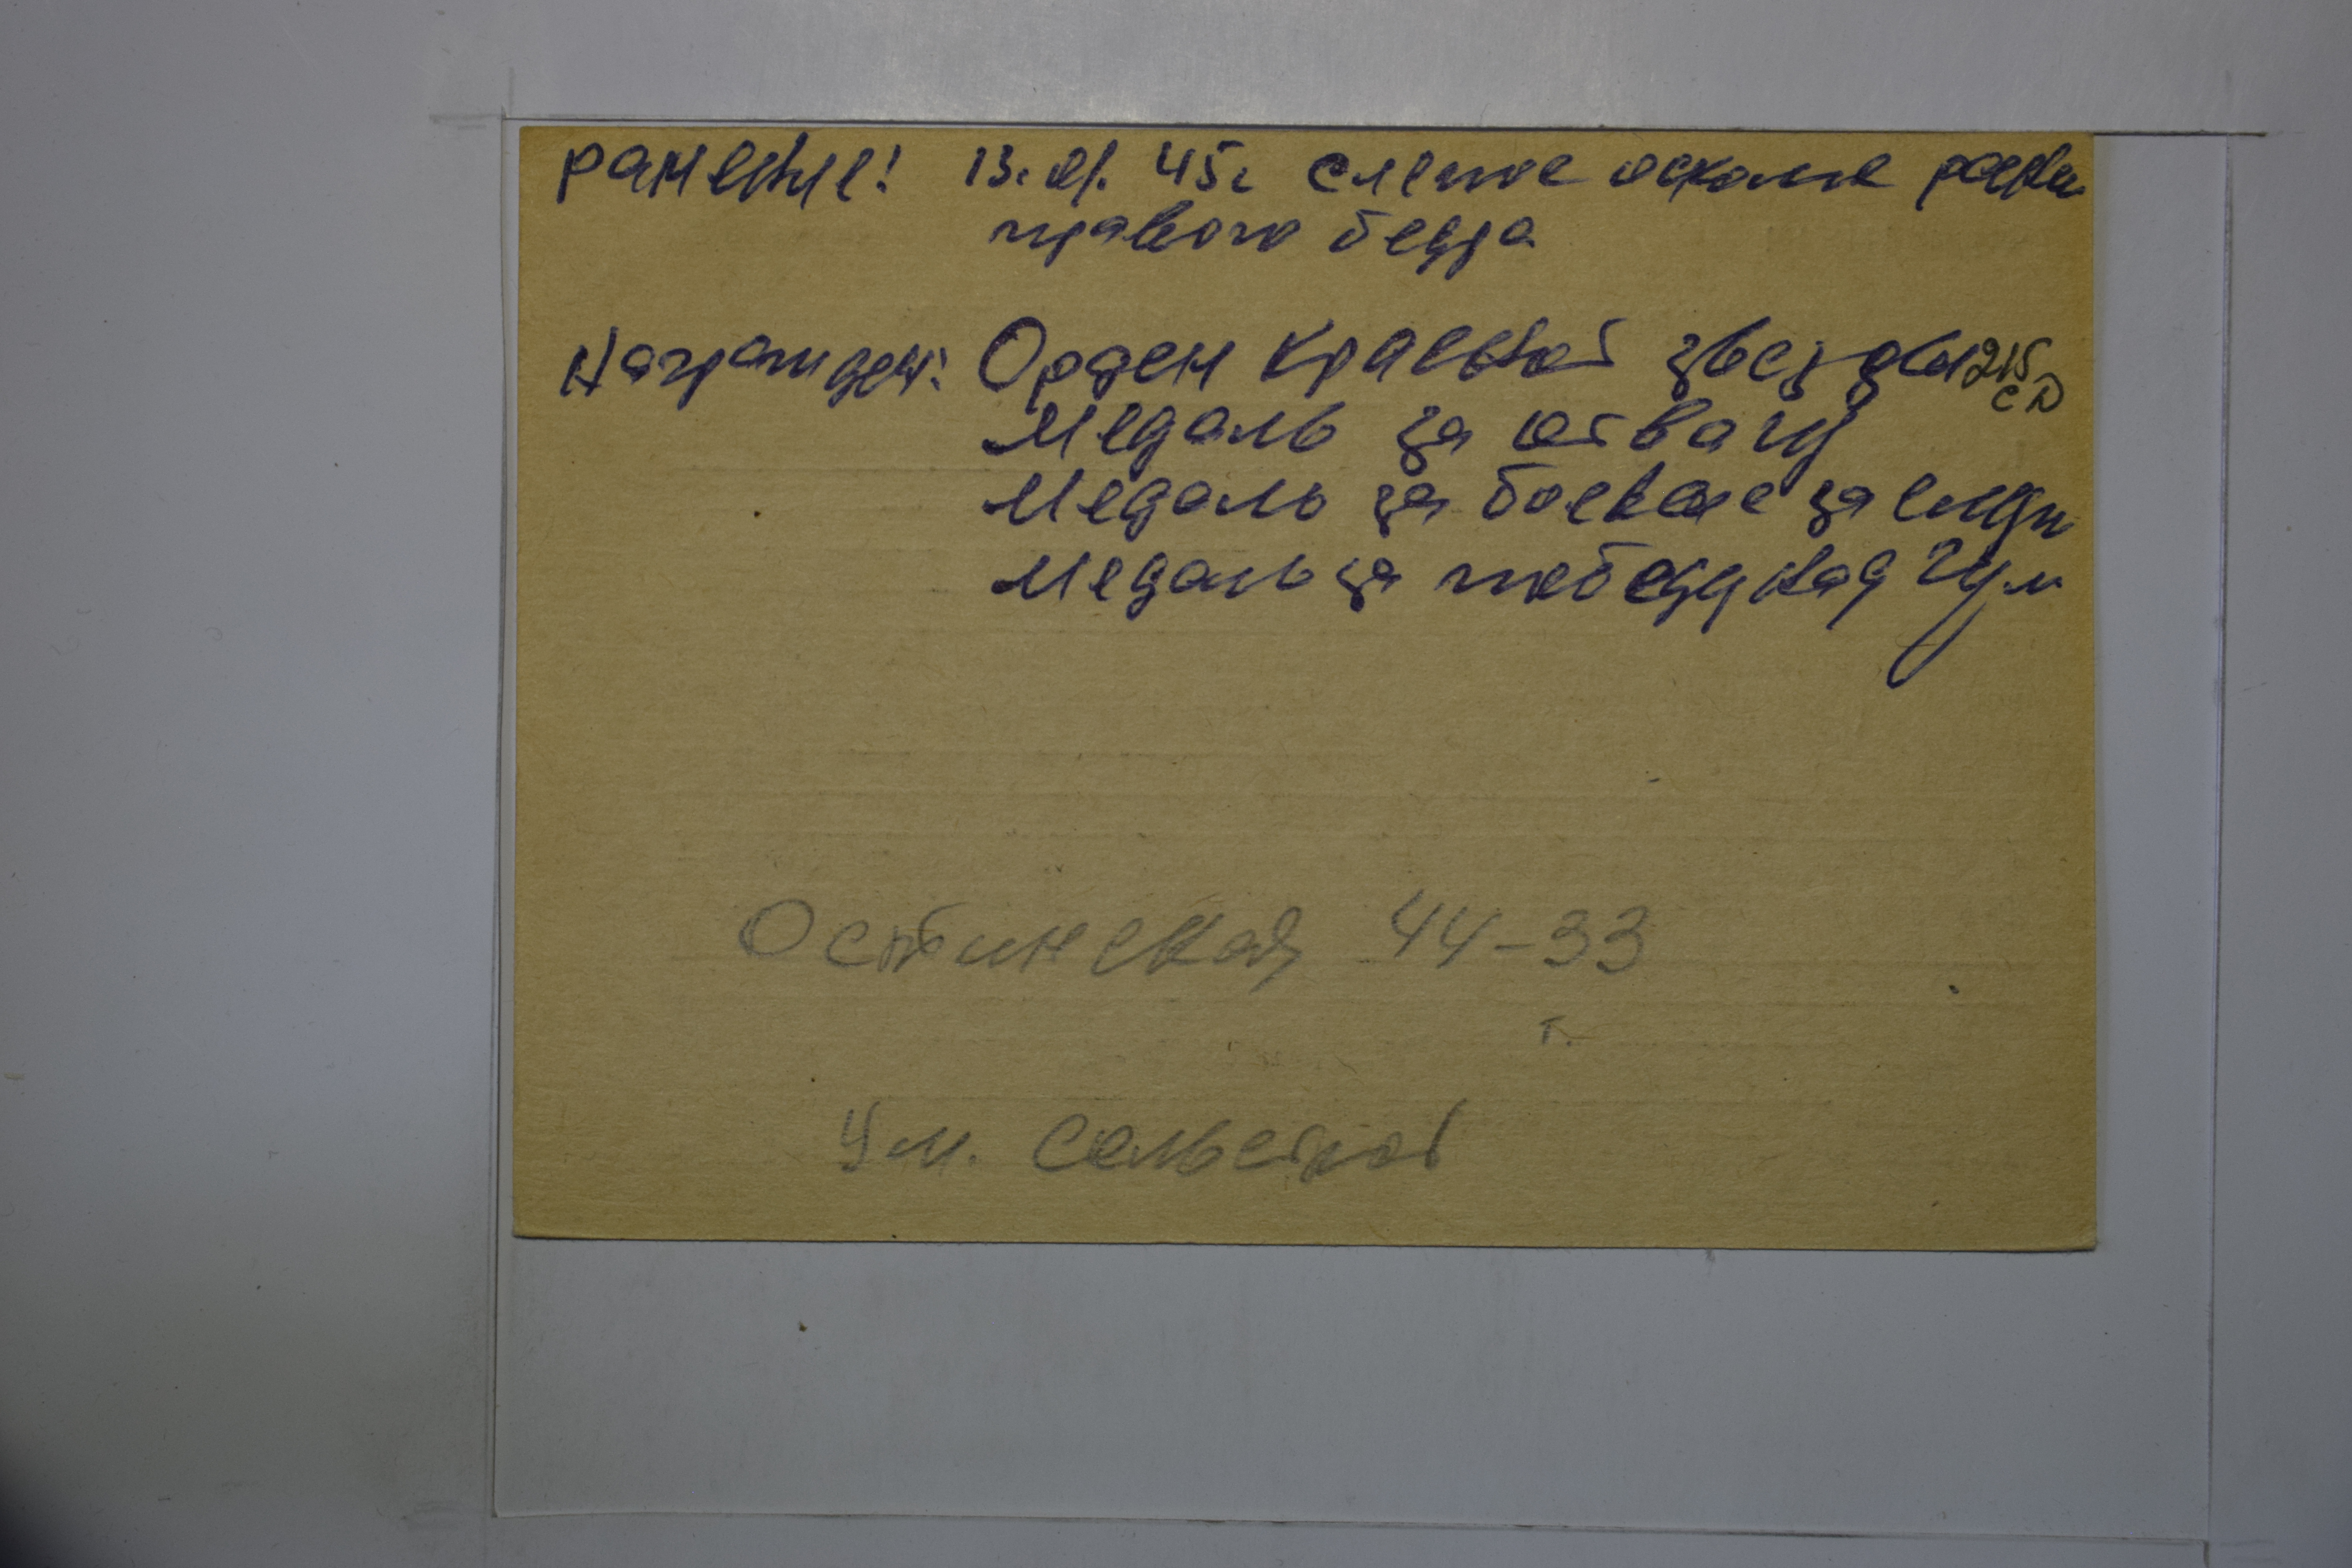 ранение: 13.01.45г слепое осколоч ранен
правого бедра
Награжден: Орден Красной звезды 215
СД
Медаль за отвагу
Медаль за боевые заслуги
Медаль за победу над Гер
44-33
г.
Ум.